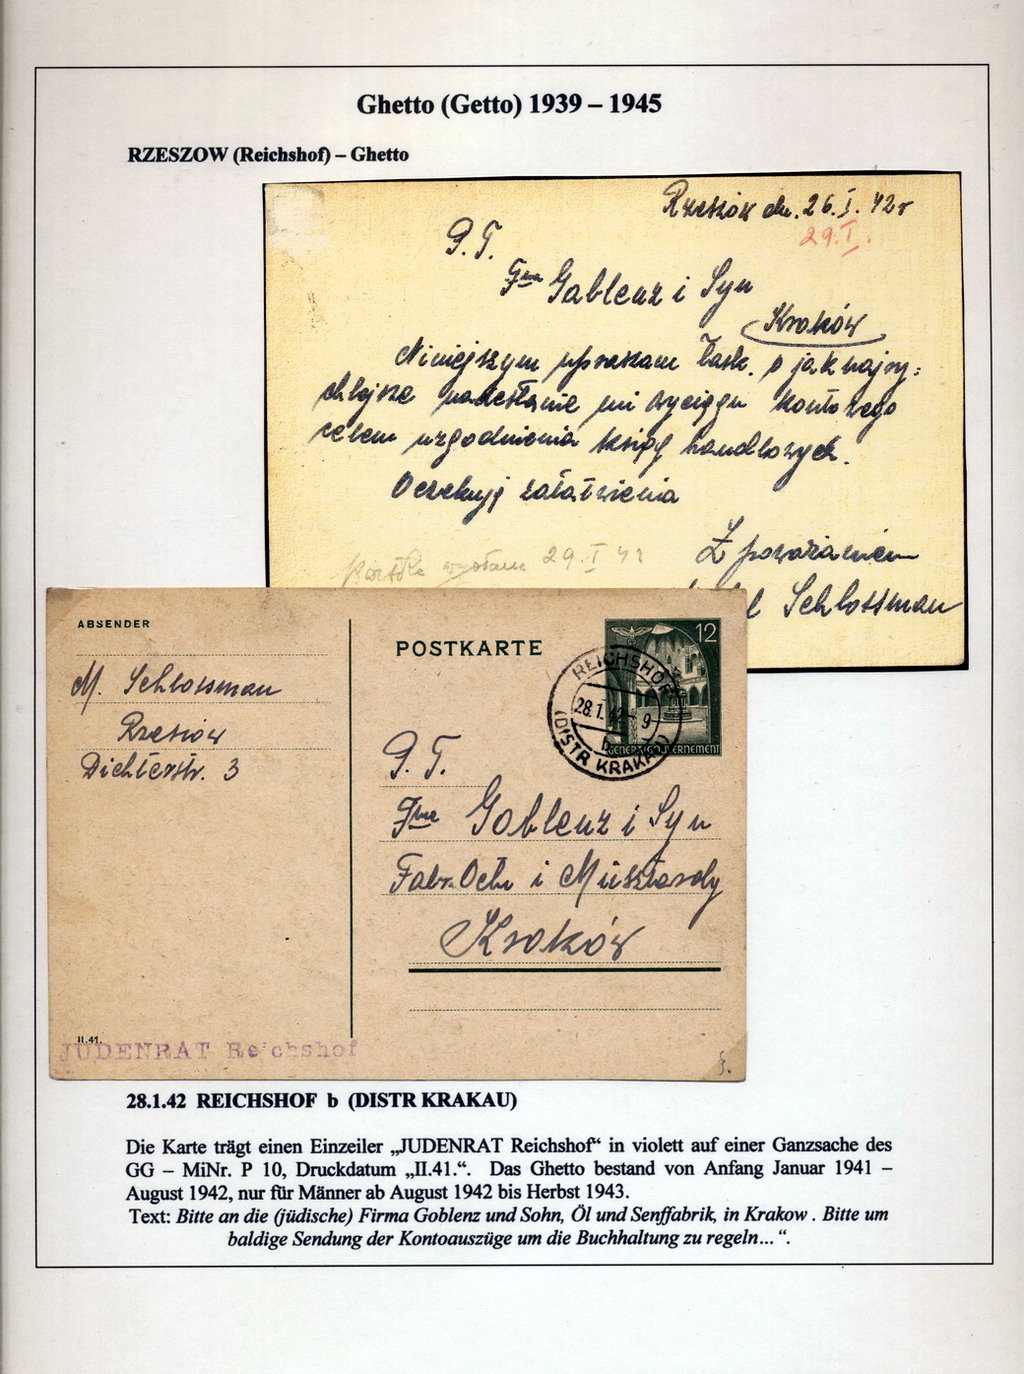 Ghetto (Getto) 1939 – 1945
RZESZOW (Reichshof) – Ghetto
Rzeszów dn. 26.I.42r
29.I.
P.T.
Fma Gablenz i Syn
Kraków
Niniejszym upraszam łask. o jaknajry=
chlejsze nadesłanie mi wyciągu kontowego
celem uzgodnienia ksiąg handlowych.
Oczekuję załatwienia
Z poważaniem
Schlossman
Kartka wysłana 29.I 42
ABSENDER
M. Schlossman
Rzeszów
Dichterstr. 3
POSTKARTE
12
GENERALGOUVERNEMENT
REICHSHOF
28.1.42 - 9
b
(DISTR KRAKAU)
P.T.
Fma Goblenz i Syn
Fabr. Octu i Musztardy
Kraków
II.41.
JUDENRAT Reichshof
28.1.42 REICHSHOF b (DISTR KRAKAU)
Die Karte trägt einen Einzeiler „JUDENRAT Reichshof“ in violett auf einer Ganzsache des
GG – MiNr. P 10, Druckdatum „II.41.“. Das Ghetto bestand von Anfang Januar 1941 –
August 1942, nur für Männer ab August 1942 bis Herbst 1943.
Text: Bitte an die (jüdische) Firma Goblenz und Sohn, Öl und Senffabrik, in Krakow . Bitte um
baldige Sendung der Kontoauszüge um die Buchhaltung zu regeln... “.